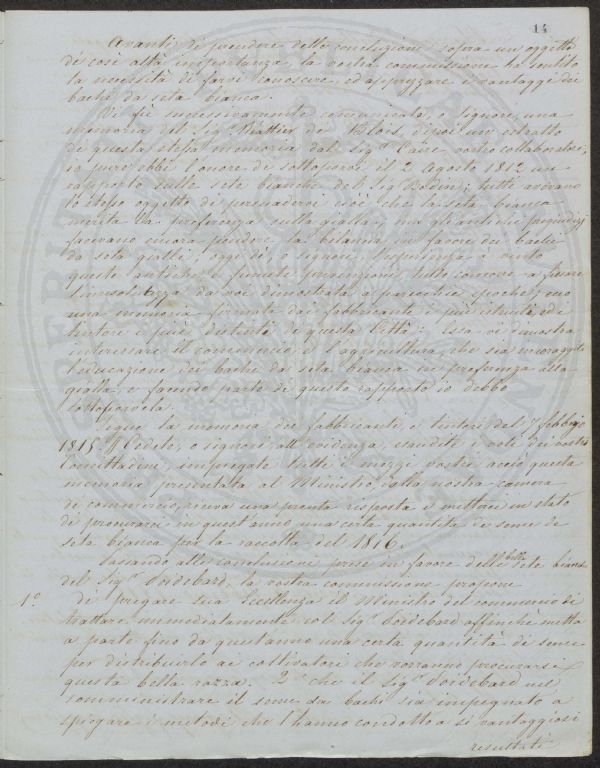 14
Avanti di prendere delle conclusioni sopra un oggetto
di così alta importanza, la vostra commissione ha sentito
la necessità di farvi conoscere ed apprezzare i vantaggi dei
bachi da seta bianca.
Vi fù successivamente comunicata, o signori, una
memoria del Sig.r Rattier de Blois, di poi un estratto
di questa stessa memoria dal Sig.r vostro collaboratore,
io pure ebbi l'onore di sottoporvi il 2 Agosto 1812 un
rapporto sulle sete bianche del Sig.r Rodin; tutti avevano
lo stesso oggetto di persuadervi cioè che la seta bianca
merita la preferenza sulla gialla, ma gli antichi pregiudizj
facevano ancora pendere la bilancia in favore dei bachi
da seta gialli; oggi dì, o signori, l'esperienza à vinto
queste antiche e funeste prevenzioni, tutto concorre a fissare
da voi dimostrata a parecchie epoche, ecco
una memoria firmata dai fabbricanti i più istruiti, e dei
tintori i più distinti di questa Città: Essa vi dimostra
interessare il commercio e l'agricoltura, che sia incoraggita
l'educazione dei bachi da seta bianca in preferenza alla
gialla e facendo parte di questo rapporto io debbo
sottoporvela.
Segue la memoria dei fabbricanti e tintori del 7 febbrajo
1815. Cedete, o signori, all'evidenza, esaudite i voti dei vostri
Concittadini, impiegate tutti i mezzi vostri, acciò questa
memoria presentata al Ministro dalla nostra camera
di commercio, riceva una pronta risposta e mettaci in stato
di procurarci in quest'anno una certa quantità di seme di
seta bianca per la raccolta del 1816.
Passando alle conclusioni prese in favore delle belle sete bianche
del Sig.r Poidebard, la vostra commissione propone
1.o di pregare sua Eccellenza il Ministro del commercio di
trattare immediatamente col Sig.r Poidebard affinchè metta
a parte fino da quest'anno una certa quantità di seme
per distribuirlo ai coltivatori che vorranno procurarsi
questa bella razza. 2.o che il Sig.r Poidebard nel
somministrare il seme da bachi sia impegnato a
spiegare i metodi che l'hanno condotto a sì vantaggiosi
resultati